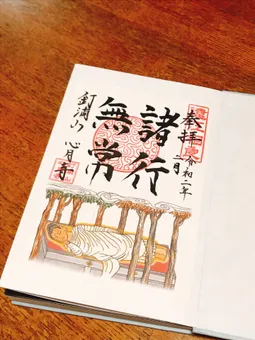 奉拝
令和二年
二月
諸行
無常
心月寺